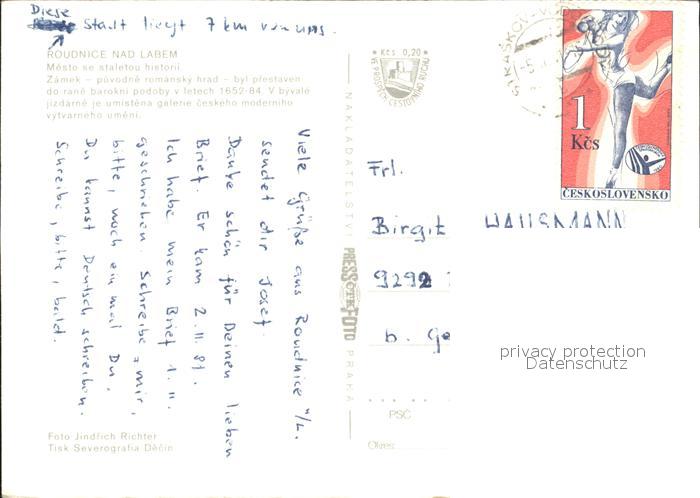 Diese
Stadt liegt 7 km von uns.
ROUDNICE NAD LABEM
Město se staletou historií.
Zámek – původně románský hrad – byl přestaven
do raně barokní podoby v letech 1652-84. V bývalé
jízdárně je umístěna galerie českého moderního
výtvarného umění.
Viele Grüße aus Roudnice n/L.
sendet dir Josef.
Danke schön für Deinen lieben
Brief. Er kam 2. 11. 81.
Ich habe mein Brief 1. 11.
geschrieben. Schreibe, mir,
bitte, noch ein mal Du,
Du kannst Deutsch schreiben.
Schreibe, bitte, bald.
Foto Jindřich Richter
Tisk Severografia Děčín
NAKLADATELSTVÍ PRESSFOTO PRAHA
Kčs 0,20
1
Kčs
ČESKOSLOVENSKO
Frl.
Birgit HAUSMANN
9292
b. Ge
PSČ
Okres
privacy protection
Datenschutz